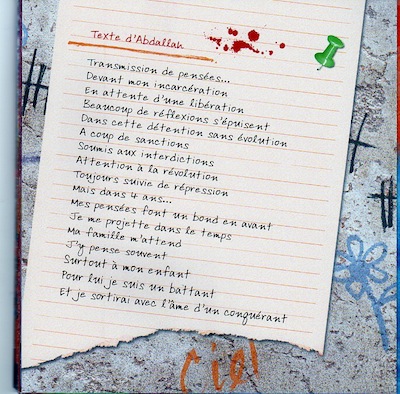 Texte d'Abdallah
Transmission de pensées...
Devant mon incarcération
En attente d'une libération
Beaucoup de réflexions s'épuisent
Dans cette détention sans évolution
A coup de sanctions
Soumis aux interdictions
Attention à la révolution
Toujours suivie de répression
Mais dans 4 ans...
Mes pensées font un bond en avant
Je me projette dans le temps
Ma famille m'attend
J'y pense souvent
Surtout à mon enfant
Pour lui je suis un battant
Et je sortirai avec l'âme d'un conquérant